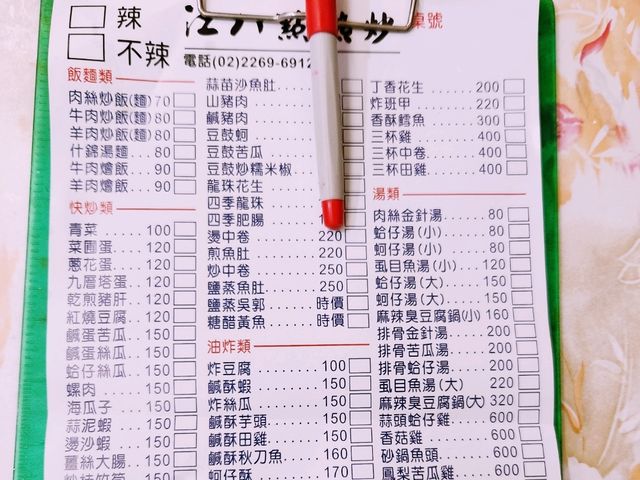 辣
不辣
電話(02)2269-6912
桌號
飯麵類
肉絲炒飯(麵)70
牛肉炒飯(麵)80
羊肉炒飯(麵)80
什錦湯麵...80
牛肉燴飯...90
羊肉燴飯...90
快炒類
青菜......100
菜圃蛋...120
蔥花蛋...120
九層塔蛋..120
乾煎豬肝..120
紅燒豆腐..120
鹹蛋苦瓜..150
鹹蛋絲瓜..150
蛤仔絲瓜..150
螺肉......150
海瓜子...150
蒜泥蝦...150
燙沙蝦...150
薑絲大腸..150
蒜苗沙魚肚
山豬肉
鹹豬肉
豆鼓蚵
豆鼓苦瓜
豆鼓炒糯米椒
龍珠花生
四季龍珠
四季肥腸
燙中卷 220
煎魚肚 220
炒中卷 250
鹽蒸魚肚 250
鹽蒸吳郭 時價
糖醋黃魚 時價
油炸類
炸豆腐 100
鹹酥蝦 150
炸絲瓜 150
鹹酥芋頭 150
鹹酥田雞 150
鹹酥秋刀魚 160
蚵仔酥 170
丁香花生 200
炸班甲 220
香酥鱈魚 300
三杯雞 400
三杯中卷 400
三杯田雞 400
湯類
肉絲金針湯 80
蛤仔湯(小) 80
蚵仔湯(小) 80
虱目魚湯(小) 120
蛤仔湯(大) 150
蚵仔湯(大) 150
麻辣臭豆腐鍋(小) 160
排骨金針湯 200
排骨苦瓜湯 200
排骨蛤仔湯 200
虱目魚湯(大) 220
麻辣臭豆腐鍋(大) 320
蒜頭蛤仔雞 600
香菇雞 600
砂鍋魚頭 600
鳳梨苦瓜雞 600